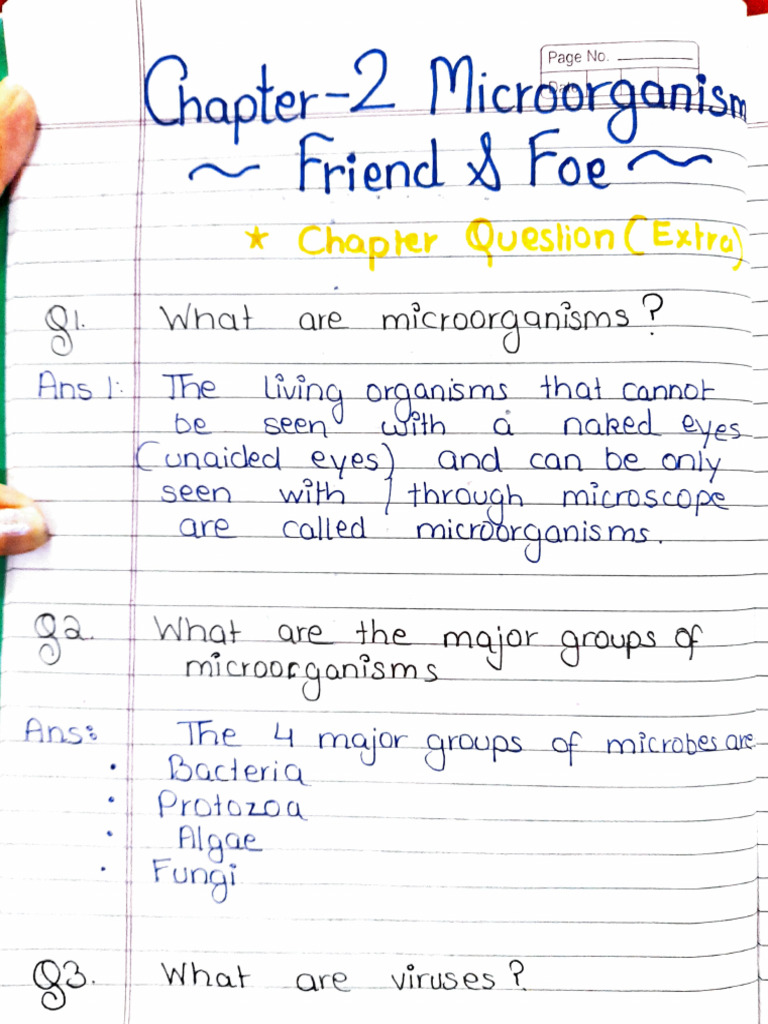 Page No.
Chapter-2 Microorganism
~ Friend & Foe ~
* Chapter Question (Extra)
Q1. What are microorganisms?
Ans 1: The living organisms that cannot
be seen with a naked eyes
(unaided eyes) and can be only
seen with / through microscope
are called microorganisms.
Q2. What are the major groups of
microorganisms
Ans: The 4 major groups of microbes are
• Bacteria
• Protozoa
• Algae
• Fungi
Q3. What are viruses?